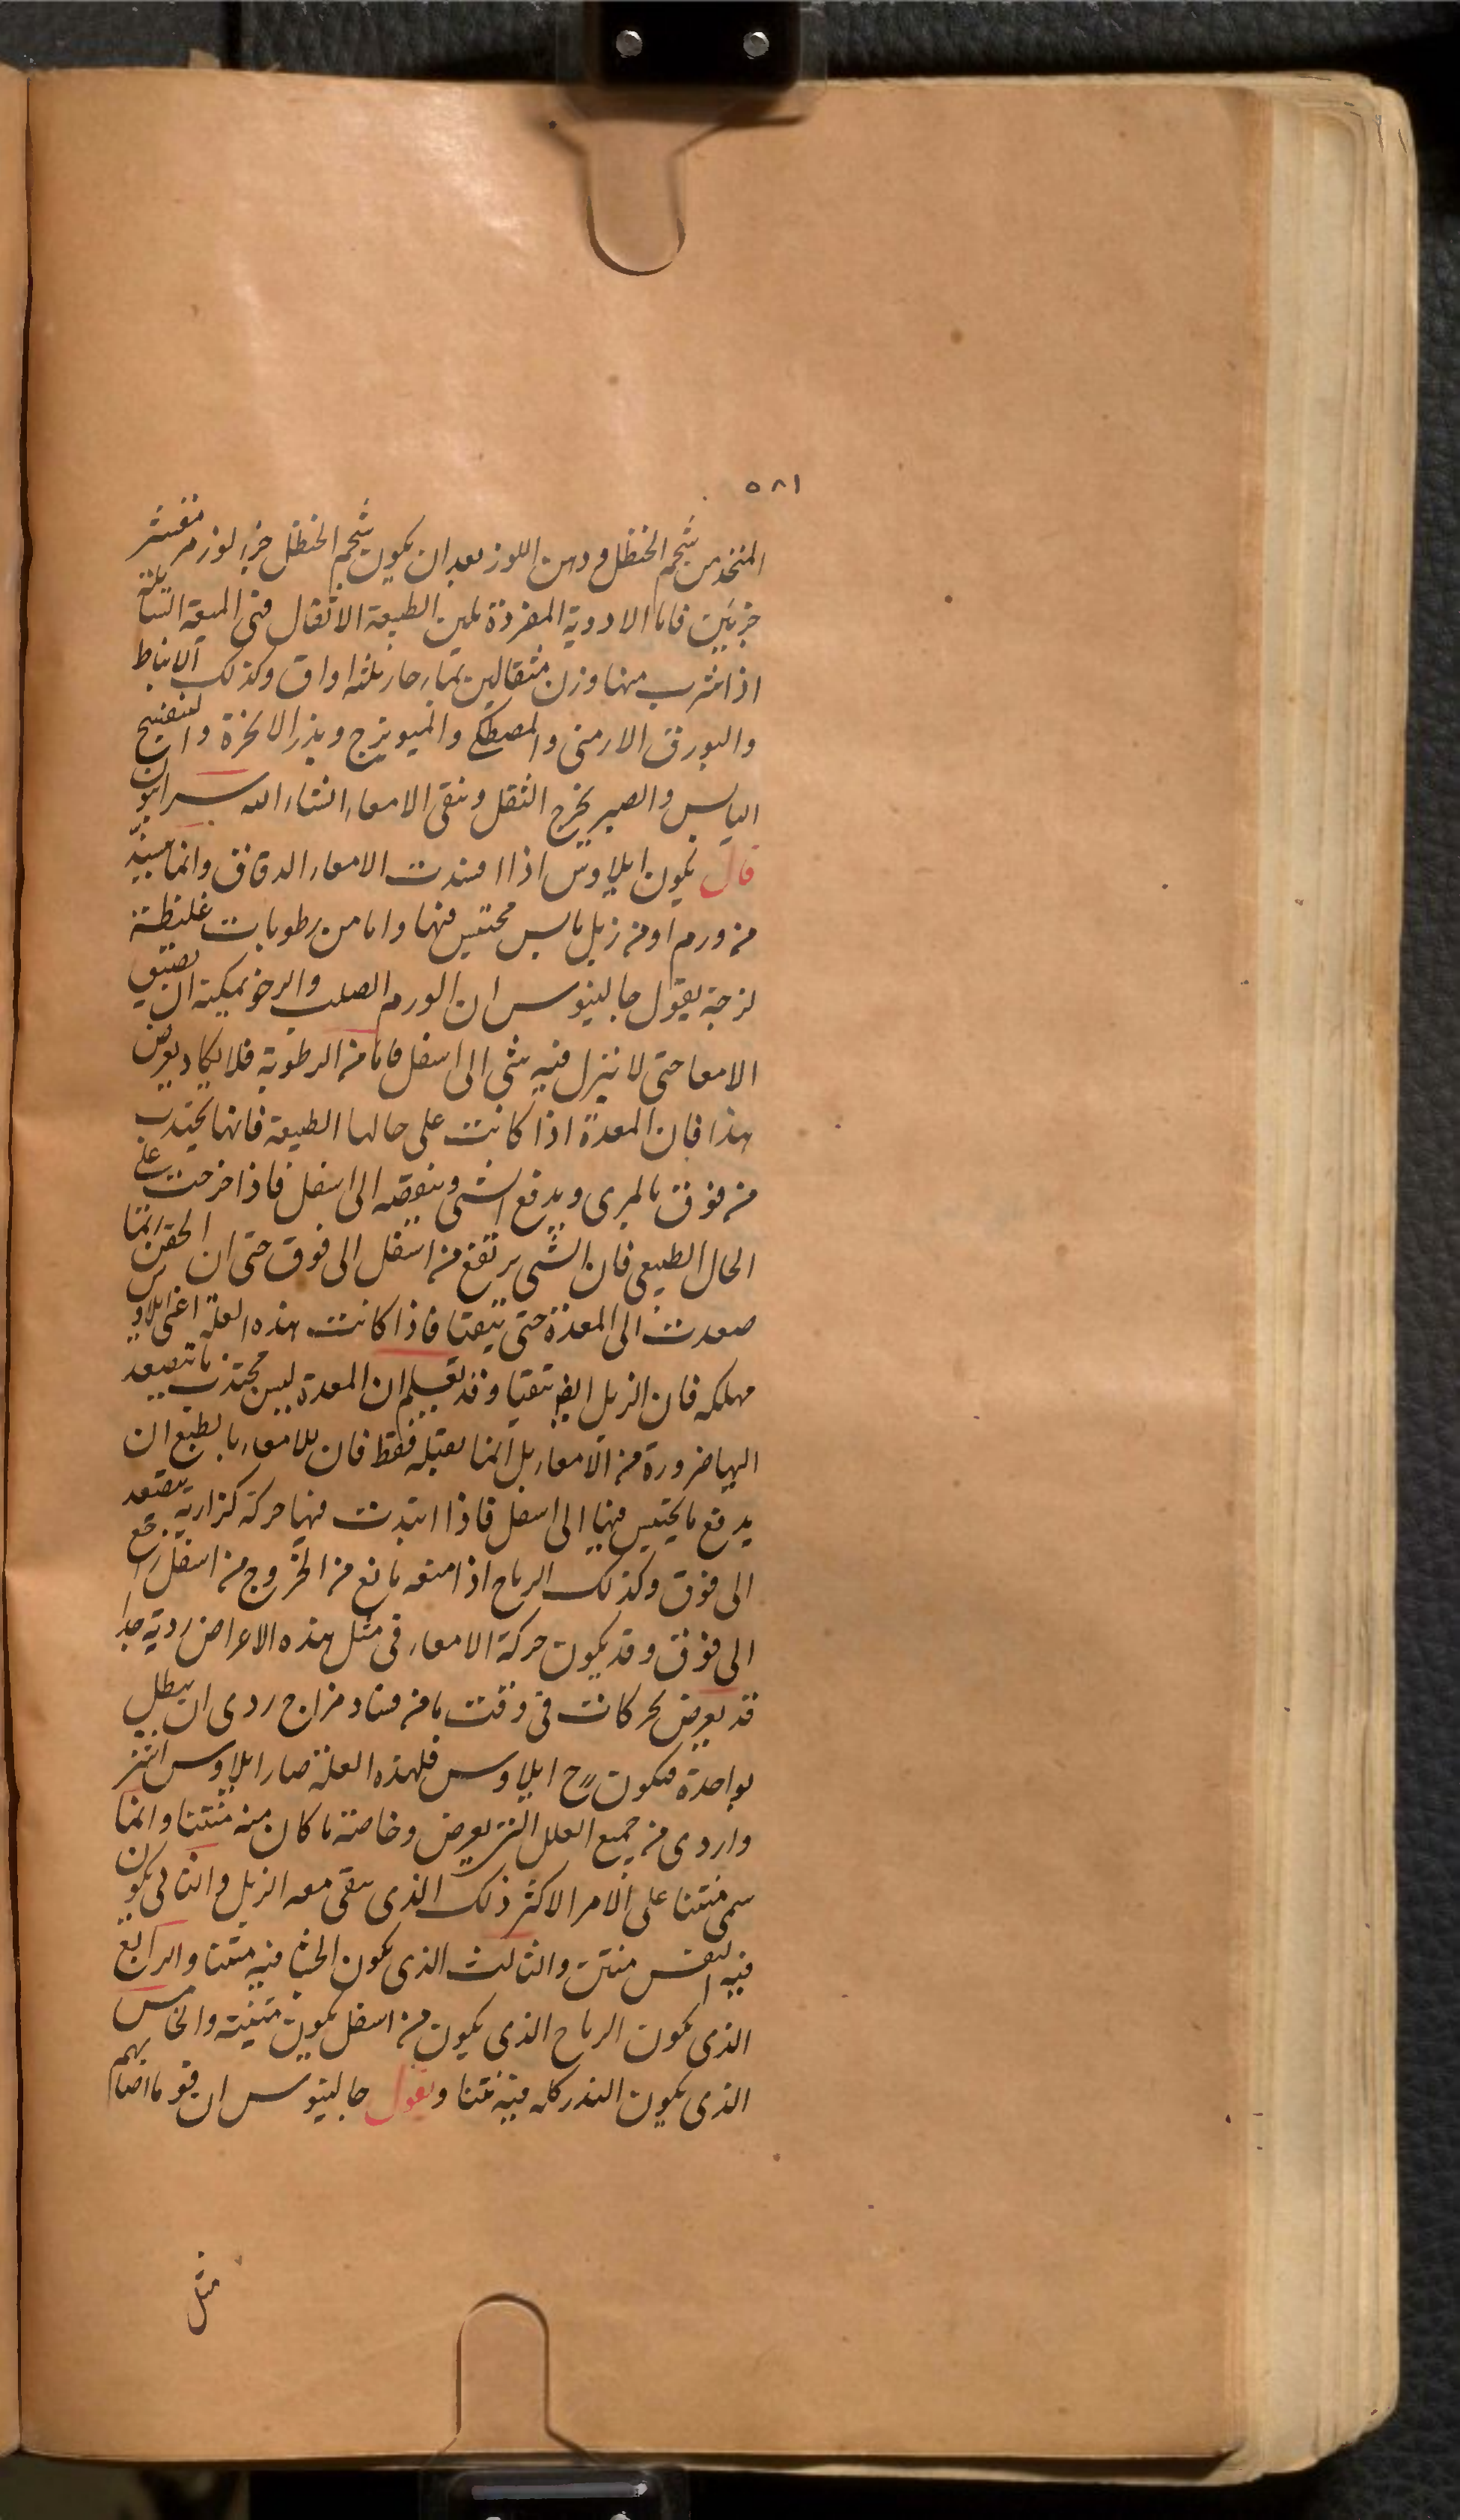 ٥٨١
المتخذ من شحم الحنظل ودهن اللوز بعد ان يكون شحم الحنظل جزء لوز مر مقشر
جزئين فاما الادوية المفردة تلين الطبيعة الاثقال فهى الميعة السائلة
اذا شرب منها وزن مثقالين بماء حار ثلثه اواق وكذلك الانباط
والبورق الارمنى والمصطكى والميويزج وبذر الانجرة والبنفسج
اليابس والصبر يخرج الثقل وينقى الامعاء انشاء الله سرابيون
قال يكون ايلاوس اذا انسدت الامعاء الدقاق وانما سبيه
من ورم او من زبل يابس محتبس فيها واما من رطوبات غليظة
لزجة يقول جالينوس ان الورم الصلب والرخو يمكنه ان يضيق
الامعا حتى لا ينزل فيه شى الى اسفل فاما من الرطوبة فلا يكاد يعرض
هذا فان المعدة اذا كانت على حالها الطبيعة فانها تجتذب
من فوق بالمرى ويدفع الشى وينقصه الى اسفل فاذا خرجت على
الحال الطبيعى فان الشى يرتفع من اسفل الى فوق حتى ان الحقن انما
صعدت الى المعدة حتى يتقيا فاذا كانت هذه العلة اعنى ايلاوس
مهلكه فان الزبل ايضا يتقيا وقد تعلم ان المعدة ليس تجتذب ما تصعد
اليها ضرورة من الامعاء بل انما تقبله فقط فان للامعاء بالطبع ان
يدفع ما يحتبس فيها الى اسفل فاذا ابتدت فيها حركة كزازية يتصعد
الى فوق وكذلك الرياح اذا منعه مانع من الخروج من اسفل رجع
الى فوق وقد يكون حركة الامعاء فى مثل هذه الاعراض ردية جدا
قد يعرض لحركات فى وقت ما من فساد مزاج ردى ان يبطل
بواحدة فيكون ح ايلاوس فلهذه العلة صار ايلاوس اشر
واردى من جميع العلل التى يعرض وخاصة ما كان منه منتنا وانما
سمى منتنا على الامر الاكثر ذلك الذى يبقى معه الزبل والثانى يكون
فيه النفس منتن والثالث الذى يكون الجشا فيه منتنا والرابع
الذى يكون الرياح الذى يكون من اسفل يكون منتنة والخامس
الذى يكون البدن كله فيه منتنا ويقول جالينوس ان قوما اصابهم
مثل